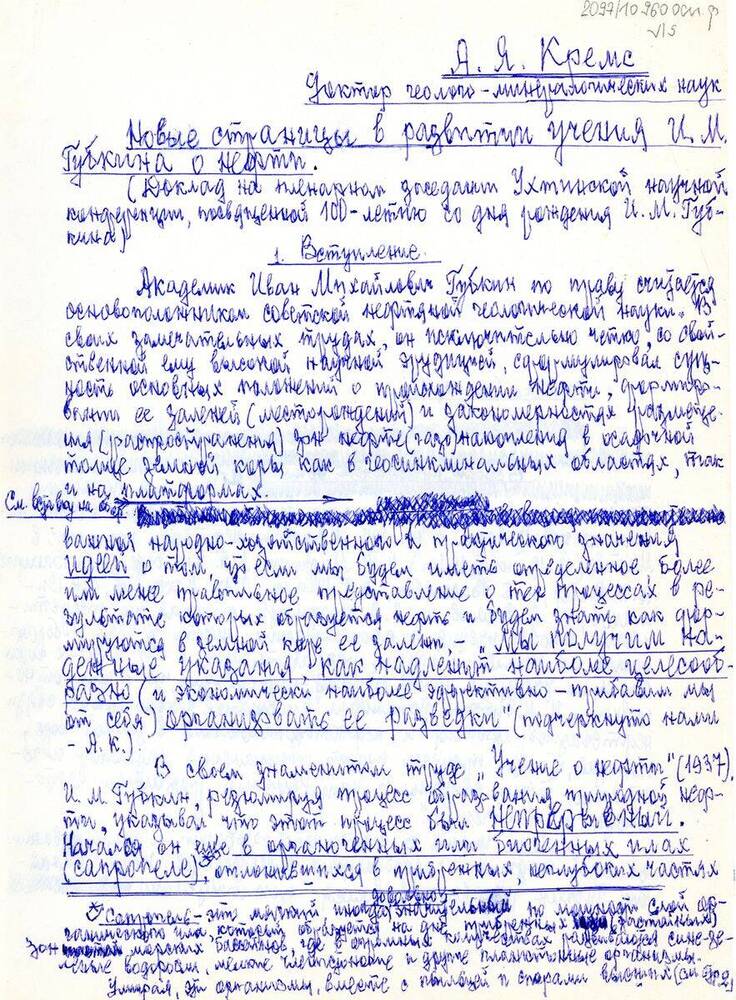 2097/10960 осн.ф
А. Я. Кремс
Доктор геолого-минералогических наук
Новые страницы в развитии учения И. М.
Губкина о нефти.
(Доклад на пленарном заседании Ухтинской научной
конференции, посвященной 100-летию со дня рождения И. М. Губ-
кина)
1. Вступление.
Академик Иван Михайлович Губкин по праву считается
основоположником советской нефтяной геологической науки. В
своих замечательных трудах, он исключительно четко, со свой-
ственной ему высокой научной эрудицией, сформулировал сущ-
ность основных положений о происхождении нефти, формиро-
вании ее залежей (месторождений) и закономерностях размеще-
ния (распространения) зон нефте(газо)накопления в осадочной
толще земной коры как в геосинклинальных областях, так
и на платформах.
См. вставку на об.
важная народно-хозяйственного и практического значения
идеей о том что если мы будем иметь определенное более
или менее правильное представление о тех процессах в ре-
зультате которых образуется нефть и будем знать как фор-
мируются в земной коре ее залежи, - „Мы получим на-
дежные указания, как надлежит наиболее целесооб-
разно (и экономически наиболее эффективно - прибавим мы
от себя) организовать ее разведки" (подчеркнуто нами
- А. К.).
В своем знаменитом труде „Учение о нефти" (1937).
И. М. Губкин, резюмируя процесс образования природной неф-
ти, указывал что этот процесс был непрерывный.
Начался он еще в органогенных или биогенных илах
(сапропеле), отложившихся в прибрежных, неглубоких частях
довольно
* Сапропель - это мягкий иногда значительный по мощности слой ор-
ганического ила который образуется на дне прибрежных (застойных)
зон морских бассейнов, где в огромных количествах развиваются сине-зе-
леные водоросли, мелкие членистоногие и другие планктонные организмы.
Умирая, эти организмы, вместе с пыльцой и спорами высших (см стр. 2)